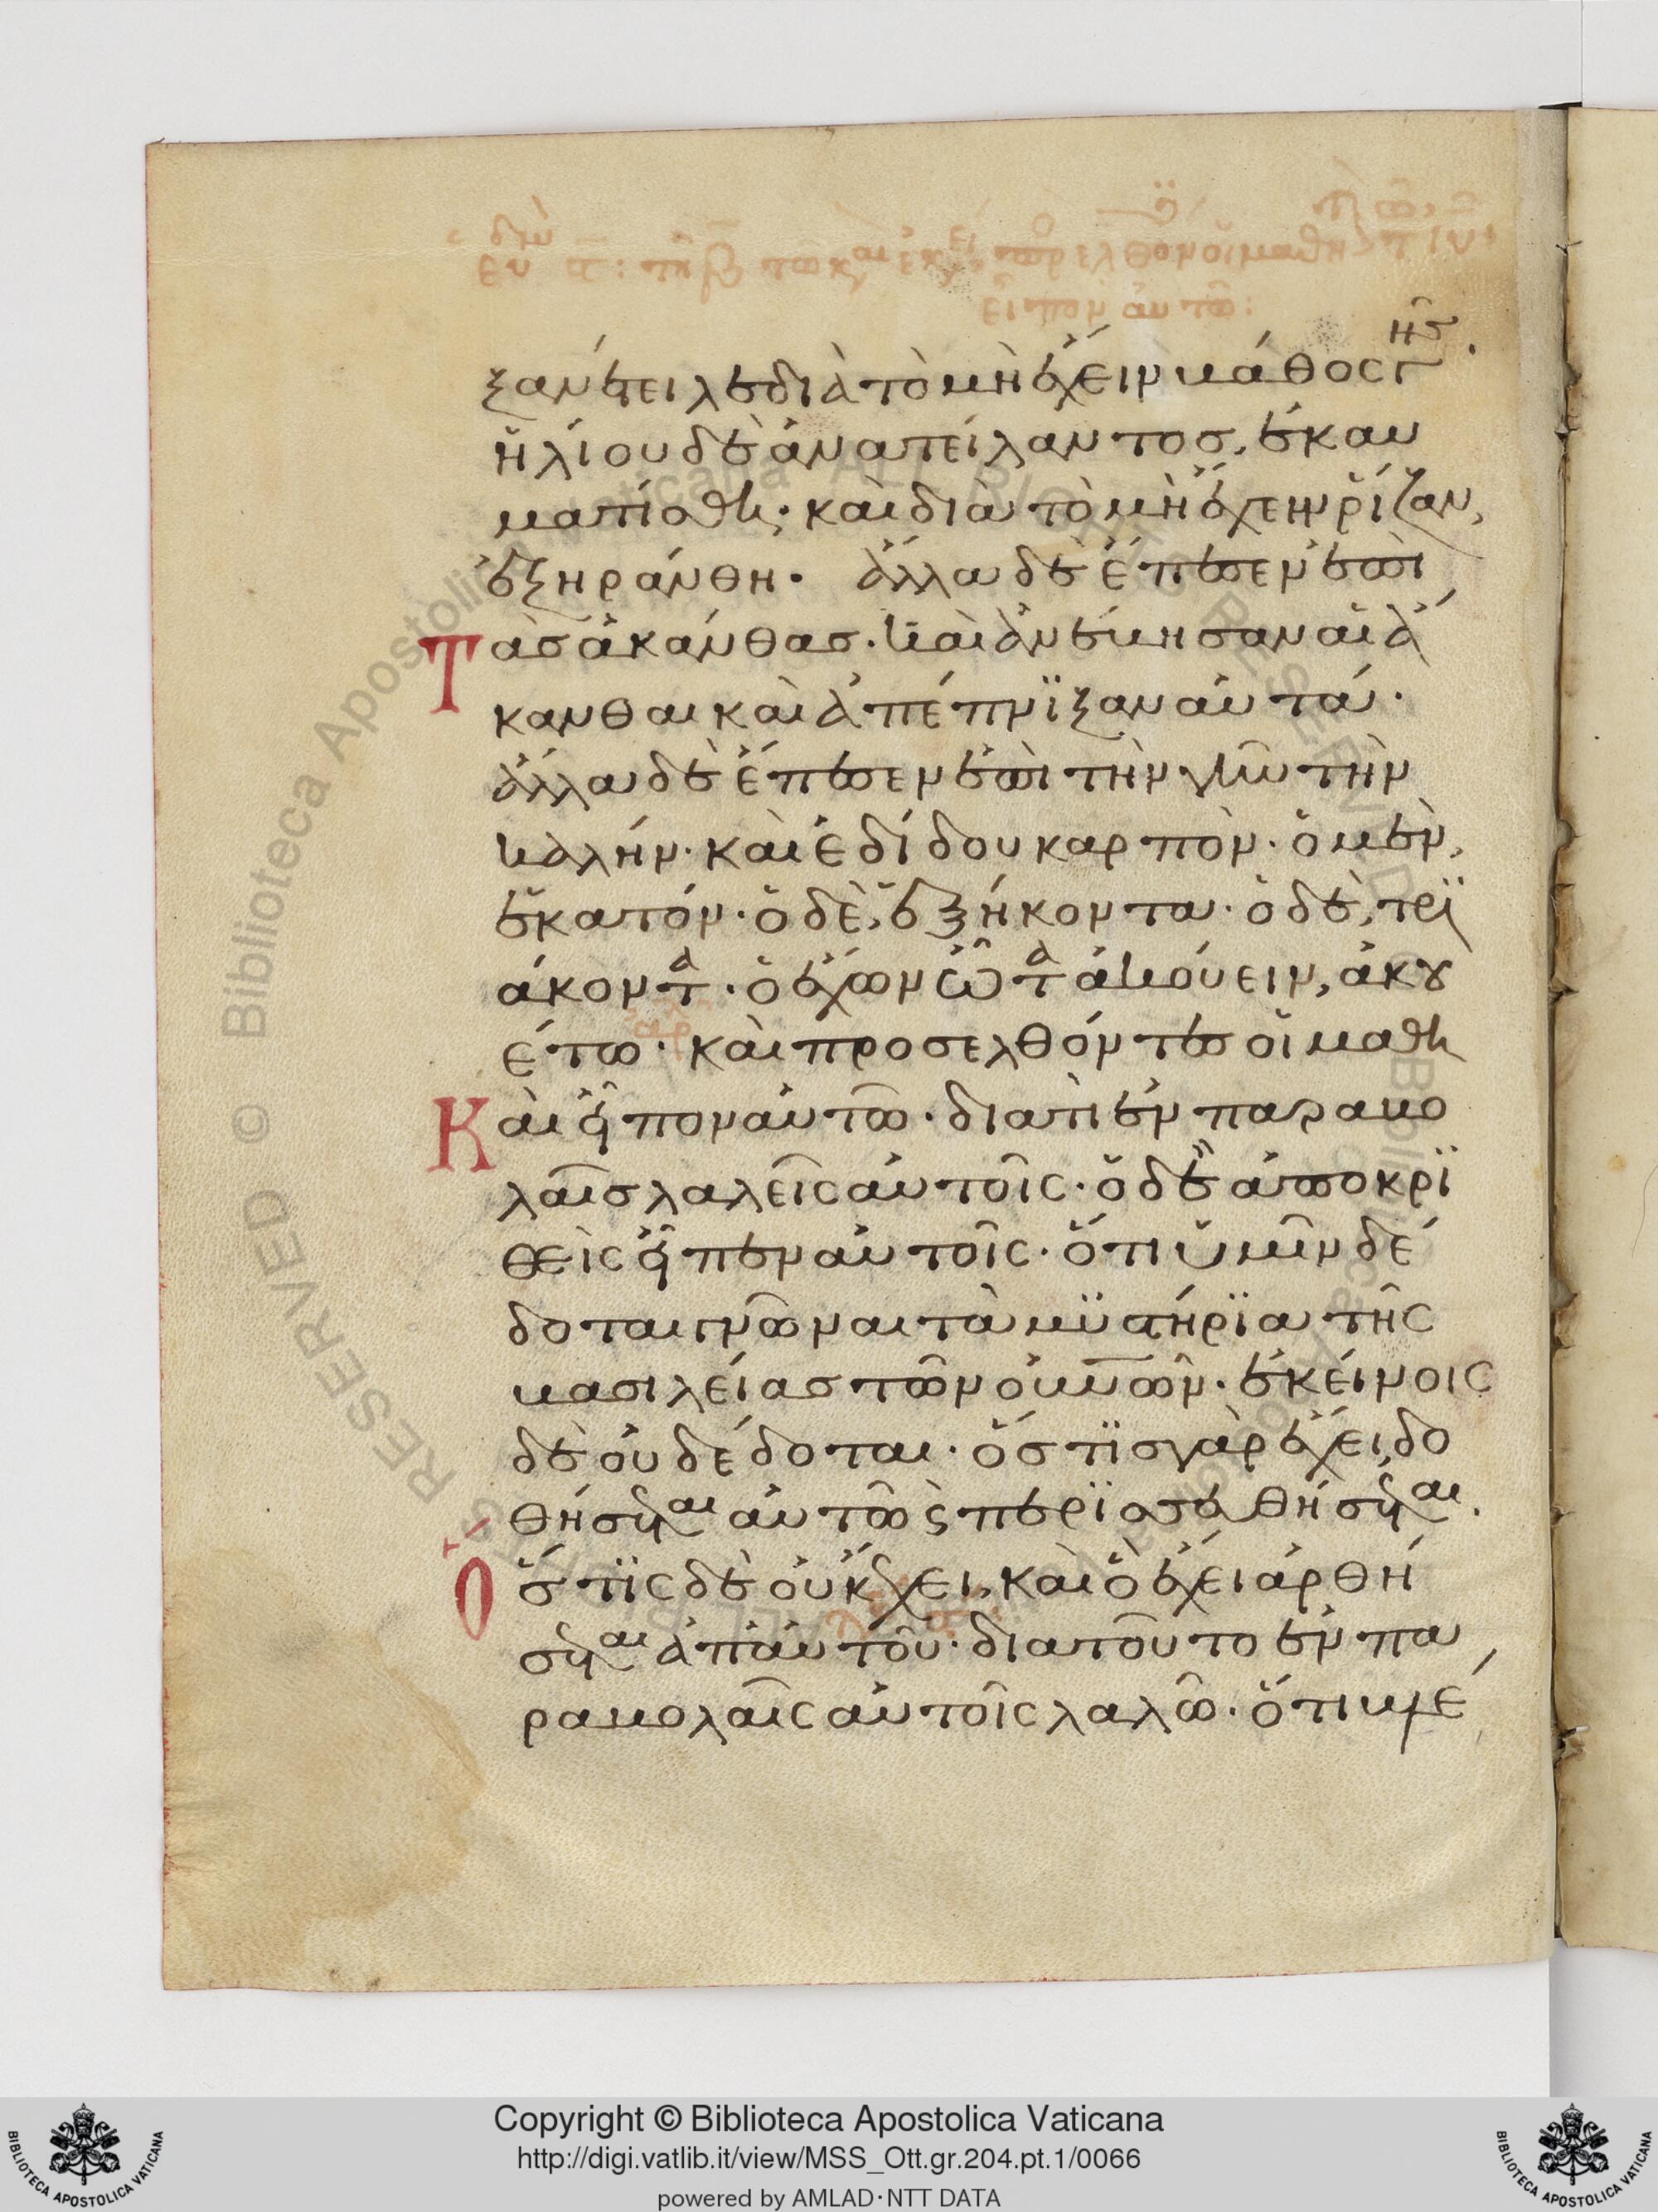 ξανέτειλε διὰ τὸ μὴ ἔχειν βάθος γῆσ.
ἡλίου δὲ ἀνατείλαντοσ, ἐκαυ
ματίσθη· καὶ διὰ τὸ μὴ ἔχειν ῥίζαν,
ἐξηράνθη· ἄλλα δὲ ἔπεσεν ἐπὶ
τὰσ ἀκάνθασ· καὶ ἀνέβησαν αἱ ἄ
κανθαι καὶ ἀπέπνϊξαν αὐτά·
ἄλλα δὲ ἔπεσεν ἐπὶ τὴν γῆν τὴν
καλήν· καὶ ἐδίδου καρπὸν· ὁ μὲν,
ἑκατόν· ὁ δὲ, ἑξήκοντα· ὁ δὲ, τρϊ
άκοντα· ὁ ἔχων ὦτα ἀκούειν, ἀκου
έτω· καὶ προσελθόντεσ οἱ μαθη
καὶ εἶπον αὐτῶ· διατὶ ἐν παραβο
λαῖσ λαλεῖς αὐτοῖς· ὁ δὲ ἀποκρϊ
θεὶς εἶπεν αὐτοῖς· ὅτι ὑμῖν δέ
δοται γνῶναι τὰ μϋστήρϊα τῆς
βασιλείασ τῶν οὐνῶν· ἐκείνοις
δὲ οὐ δέδοται· ὅστϊσ γὰρ ἔχει, δο
θήσεται αὐτῶ ϛ περϊσσευθήσεται.
ὅστϊς δὲ οὐκ ἔχει, καὶ ὃ ἔχει ἀρθή
σεται ἀπ' αὐτοῦ· διατοῦτο ἐν πα
ραβολαῖς αὐτοῖς λαλῶ· ὅτι βλέ
Copyright © Biblioteca Apostolica Vaticana
http://digi.vatlib.it/view/MSS_Ott.gr.204.pt.1/0066
powered by AMLAD·NTT DATA